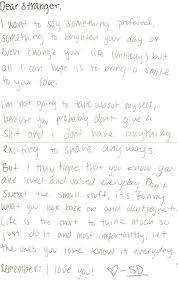 Dear Stranger,
I want to say something profound,
something to brighten your day or
even change your life (unlikely) but
all I can hope is to bring a smile
to your face.
I'm not going to talk about myself,
because you probably don't give a
shit and I don't have anything
exciting to share any ways.
But I truly hope that you know you
are loved and valued everyday. Don't
sweat the small stuff, it's funny
what you look back on and don't regret.
Life is too short to think much so
just do it and most importantly, let
the ones you love know it everyday.
Remember: I love you! ♡-SD.